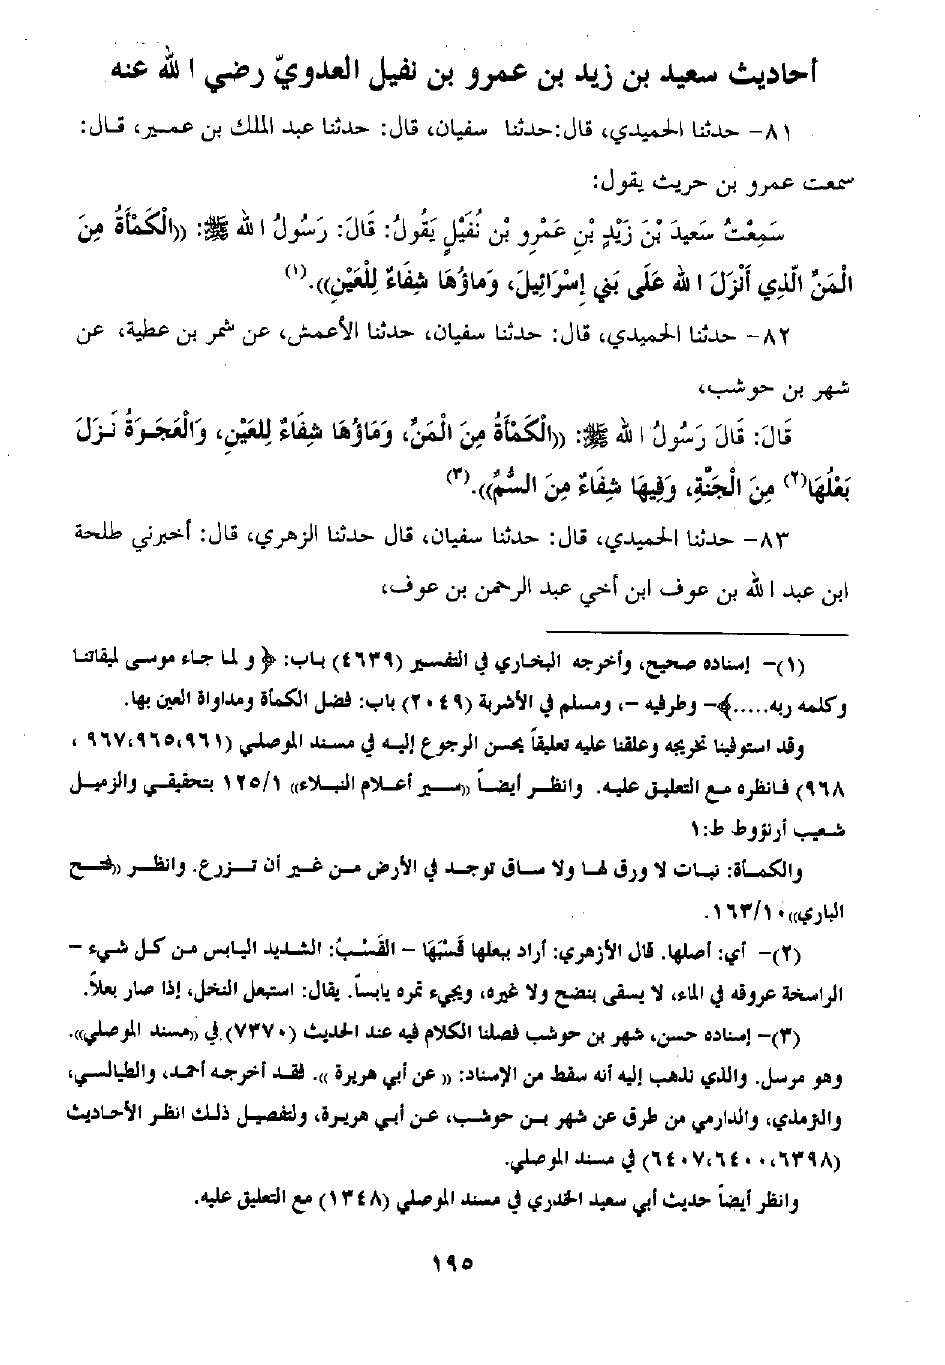 أحاديث سعيد بن زيد بن عمرو بن نفيل العدويّ رضي الله عنه
٨١- حدثنا الحميدي، قال: حدثنا سفيان، قال: حدثنا عبد الملك بن عمير، قال:
سمعت عمرو بن حريث يقول:
سَمِعْتُ سَعِيدَ بْنَ زَيْدِ بْنِ عَمْرِو بْنِ نُفَيْلٍ يَقُولُ: قَالَ: رَسُولُ الله ﷺ: ((الْكَمْأَةُ مِنَ
الْمَنِّ الّذِي أَنْزَلَ الله عَلَى بَنِي إِسْرَائِيلَ، وَمَاؤُهَا شِفَاءٌ لِلْعَيْنِ)).(١)
٨٢- حدثنا الحميدي، قال: حدثنا سفيان، حدثنا الأعمش، عن شمر بن عطية، عن
شهر بن حوشب،
قَالَ: قَالَ رَسُولُ الله ﷺ: ((الْكَمْأَةُ مِنَ الْمَنِّ، وَمَاؤُهَا شِفَاءٌ لِلعَيْنِ، وَالْعَجْوَةُ نَزَلَ
بَعْلُهَا(٢) مِنَ الْجَنَّةِ، وَفِيهَا شِفَاءٌ مِنَ السُّمِّ)).(٣)
٨٣- حدثنا الحميدي، قال: حدثنا سفيان، قال حدثنا الزهري، قال: أخبرني طلحة
ابن عبد الله بن عوف ابن أخي عبد الرحمن بن عوف،
(١)- إسناده صحيح، وأخرجه البخاري في التفسير (٤٦٣٩) باب: ﴿ولما جاء موسى لميقاتنا
وكلمه ربه.....﴾- وطرفيه -، ومسلم في الأشربة (٢٠٤٩) باب: فضل الكمأة ومداواة العين بها.
وقد استوفينا تخريجه وعلقنا عليه تعليقاً يحسن الرجوع إليه في مسند الموصلي (٩٦١، ٩٦٥، ٩٦٧،
٩٦٨) فانظره مع التعليق عليه. وانظر أيضاً ((سير أعلام النبلاء)) ١/١٢٥ بتحقيقي والزميل
شعيب أرنؤوط ط:١
والكمأة: نبات لا ورق لها ولا ساق توجد في الأرض من غير أن تزرع. وانظر ((فتح
الباري)) ١٠/١٦٣.
(٢)- أي: أصلها. قال الأزهري: أراد ببعلها قَسْبَهَا - القَسْبُ: الشديد اليابس من كل شيء -
الراسخة عروقه في الماء، لا يسقى بنضح ولا غيره، ويجيء تمره يابساً. يقال: استبعل النخل، إذا صار بعلاً.
(٣)- إسناده حسن، شهر بن حوشب فصلنا الكلام فيه عند الحديث (٧٣٧٠) في ((مسند الموصلي)).
وهو مرسل. والذي نذهب إليه أنه سقط من الإسناد: ((عن أبي هريرة)). فقد أخرجه أحمد، والطيالسي،
والترمذي، والدارمي من طرق عن شهر بن حوشب، عن أبي هريرة، ولتفصيل ذلك انظر الأحاديث
(٦٣٩٨، ٦٤٠٠، ٦٤٠٧) في مسند الموصلي.
وانظر أيضاً حديث أبي سعيد الخدري في مسند الموصلي (١٣٤٨) مع التعليق عليه.
١٩٥